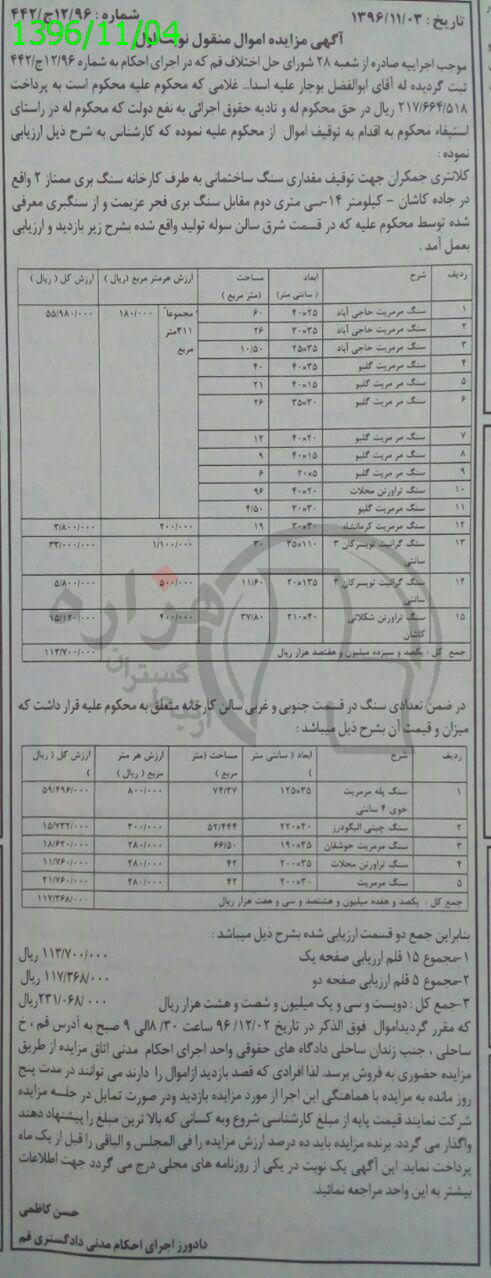 تاریخ : ۱۳۹۶/۱۱/۰۳
شماره : ۱۲/۹۶ج/۴۴۲
1396/11/04
آگهی مزایده اموال منقول نوبت اول
موجب اجراییه صادره از شعبه ۲۸ شورای حل اختلاف قم که در اجرای احکام به شماره ۱۲/۹۶ج/۴۴۲
ثبت گردیده له آقای ابوالفضل بوجار علیه اسدا... غلامی که محکوم علیه محکوم است به پرداخت
۲۱۷/۶۶۴/۵۱۸ ریال در حق محکوم له و تادیه حقوق اجرائی به نفع دولت که محکوم له در راستای
استیفاء محکوم به اقدام به توقیف اموال از محکوم علیه نموده که کارشناس به شرح ذیل ارزیابی
نموده :
کلانتری جمکران جهت توقیف مقداری سنگ ساختمانی به طرف کارخانه سنگ بری ممتاز ۲ واقع
در جاده کاشان – کیلومتر ۱۴-سی متری دوم مقابل سنگ بری فجر عزیمت و از سنگبری معرفی
شده توسط محکوم علیه که در قسمت شرق سالن سوله تولید واقع شده بشرح زیر بازدید و ارزیابی
بعمل آمد .
ردیف شرح ابعاد ( سانتی متر) مساحت (متر مربع ) ارزش هرمتر مربع (ریال ) ارزش کل ( ریال )
۱ سنگ مرمریت حاجی آباد ۲۵×۴۰ ۶۰ مجموعاً ۳۱۱متر مربع ۱۸۰/۰۰۰ ۵۵/۹۸۰/۰۰۰
۲ سنگ مرمریت حاجی آباد ۳۵×۳۰ ۲۶
۳ سنگ مرمریت حاجی آباد ۳۵×۲۵ ۱۰/۵۰
۴ سنگ مرمریت گلبو ۳۵×۴۰ ۴۰
۵ سنگ مر مریت گلبو ۱۵×۴۰ ۲۱
۶ سنگ مر مریت گلبو ۳۰×۳۵ ۲۶
۷ سنگ مر مریت گلبو ۲۰×۴۰ ۱۲
۸ سنگ مر مریت گلبو ۱۵×۴۰ ۹
۹ سنگ مر مریت گلبو ۵×۲۰ ۶
۱۰ سنگ تراورتن محلات ۲۰×۴۰ ۹۶
۱۱ سنگ مرمریت گلبو ۳۰×۳۰ ۴/۵۰
۱۲ سنگ مرمریت کرمانشاه ۳۰×۳۰ ۱۹ ۲۰۰/۰۰۰ ۳/۸۰۰/۰۰۰
۱۳ سنگ گرانیت تویسرکان ۳ سانتی ۱۱۰×۳۵ ۳۰ ۱/۱۰۰/۰۰۰ ۳۳/۰۰۰/۰۰۰
۱۴ سنگ گرانیت تویسرکان ۳ سانتی ۱۳۵×۲۰ ۱۱/۶۰ ۵۰۰/۰۰۰ ۵/۸۰۰/۰۰۰
۱۵ سنگ تراورتن شکلاتی کاشان ۴۰×۲۱۰ ۳۷/۸۰ ۴۰۰/۰۰۰ ۱۵/۱۲۰/۰۰۰
جمع کل : یکصد و سیزده میلیون و هفتصد هزار ریال ۱۱۳/۷۰۰/۰۰۰
هزاره
گستران
در ضمن تعدادی سنگ در قسمت جنوبی و غربی سالن کارخانه متعلق به محکوم علیه قرار داشت که
میزان و قیمت آن بشرح ذیل میباشد :
ردیف شرح ابعاد ( سانتی متر ) مساحت (متر مربع ) ارزش هر متر مربع ( ریال ) ارزش کل ( ریال )
۱ سنگ پله مرمریت خوی ۴ سانتی ۳۵×۱۲۵ ۷۴/۳۷ ۸۰۰/۰۰۰ ۵۹/۴۹۶/۰۰۰
۲ سنگ چینی الیگودرز ۴۰×۲۲۰ ۵۲/۴۴۴ ۳۰۰/۰۰۰ ۱۵/۷۳۲/۰۰۰
۳ سنگ مرمریت جوشقان ۳۵×۱۹۰ ۶۶/۵۰ ۲۸۰/۰۰۰ ۱۸/۶۲۰/۰۰۰
۴ سنگ تراورتن محلات ۳۵×۲۰۰ ۴۲ ۲۸۰/۰۰۰ ۱۱/۷۶۰/۰۰۰
۵ سنگ مرمریت ۳۰×۲۰۰ ۴۲ ۲۸۰/۰۰۰ ۲۱/۷۶۰/۰۰۰
جمع کل : یکصد و هفده میلیون و هشتصد و سی و هفت هزار ریال ۱۱۷/۳۶۸/۰۰۰
بنابراین جمع دو قسمت ارزیابی شده بشرح ذیل میباشد :
۱-مجموع ۱۵ قلم ارزیابی صفحه یک ۱۱۳/۷۰۰/۰۰۰ ریال
۲-مجموع ۵ قلم ارزیابی صفحه دو ۱۱۷/۳۶۸/۰۰۰ ریال
۳-جمع کل : دویست و سی و یک میلیون و شصت و هشت هزار ریال ۲۳۱/۰۶۸/۰۰۰ریال
که مقرر گردیداموال فوق الذکر در تاریخ ۹۶/۱۲/۰۲ ساعت ۸/۳۰ الی ۹ صبح به آدرس قم ، خ
ساحلی ، جنب زندان ساحلی دادگاه های حقوقی واحد اجرای احکام مدنی اتاق مزایده از طریق
مزایده حضوری به فروش برسد. لذا افرادی که قصد بازدید ازاموال را دارند می توانند در مدت پنج
روز مانده به مزایده با هماهنگی این اجرا از مورد مزایده بازدید ودر صورت تمایل در جلسه مزایده
شرکت نمایند قیمت پایه از مبلغ کارشناسی شروع وبه کسانی که بالا ترین مبلغ را پیشنهاد دهند
واگذار می گردد. برنده مزایده باید ده درصد ارزش مزایده را فی المجلس و الباقی را قبل از یک ماه
پرداخت نماید. این آگهی یک نوبت در یکی از روزنامه های محلی درج می گردد جهت اطلاعات
بیشتر به این واحد مراجعه نمائید.
حسن کاظمی
دادورز اجرای احکام مدنی دادگستری قم